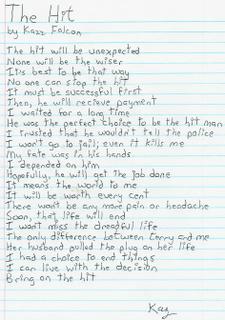 The Hit
by Kazz Falcon
The hit will be unexpected
None will be the wiser
It's best to be that way
No one can stop the hit
It must be successful first
Then, he will recieve payment
I waited for a long time
He was the perfect choice to be the hit man
I trusted that he wouldn't tell the police
I won't go to jail; even it kills me
My fate was in his hands
I depended on him
Hopefully, he will get the job done
It means the world to me
It will be worth every cent
There won't be any more pain or headache
Soon, that life will end
I won't miss the dreadful life
The only difference between Terry and me
Her husband pulled the plug on her life
I had a choice to end things
I can live with the decision
Bring on the hit
Kaz